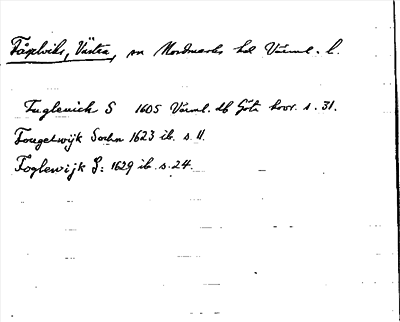 Fågelviks, Västra, sn Nordmarks hd Värml. l.
Fuglewich S 1605 Värml. db Göta hovr. s. 31.
Fougelwijk Sochn 1623 ib. s. 11.
Foglewijk S: 1629 ib. s. 24.